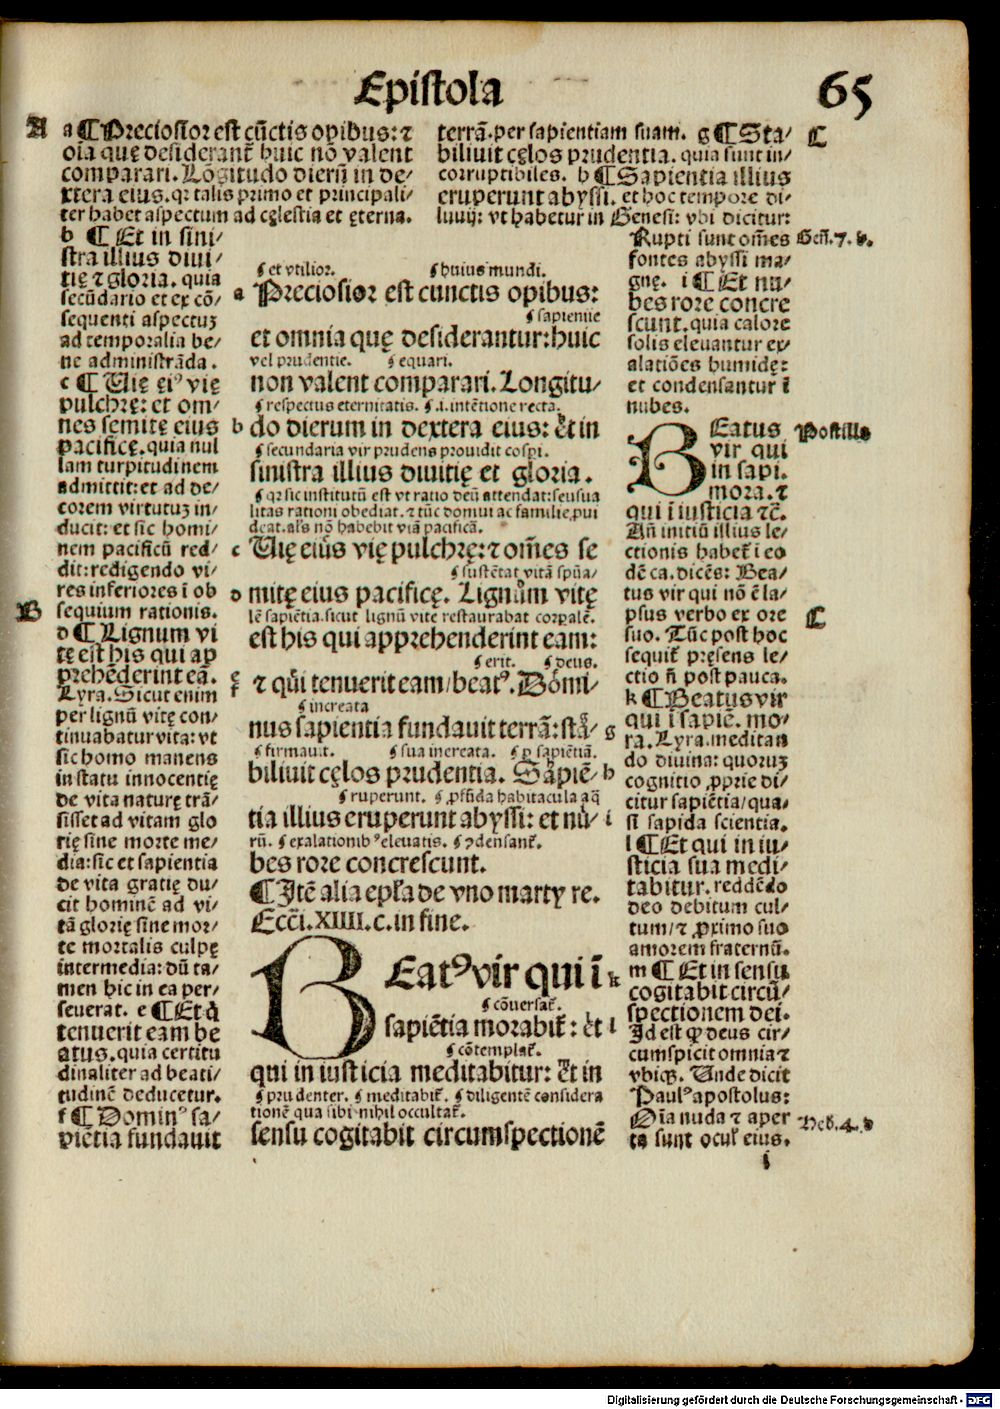 Epistola
65
A
a ¶ Preciosior est cūctis opibus: ⁊
oīa quę desiderant̃ huic nō valent
comparari. Lōgitudo dierū in de⸗
xtera eius. qr talis primo et principali⸗
ter habet aspectum ad cęlestia et ęterna.
b ¶ Et in sini⸗
stra illius diui⸗
tię ⁊ gloria. quia
secūdario et ex cō⸗
sequenti aspectuꝫ
ad temporalia be⸗
ne administrāda.
c ¶ Uię eiꝰ vię
pulchrę: et om⸗
nes semitę eius
pacificę. quia nul
lam turpitudinem
admittit: et ad de⸗
corem virtutuꝫ in⸗
ducit: et sic homi⸗
nem pacificū red⸗
dit: redigendo vi⸗
res inferiores ī ob
B
sequium rationis.
d ¶ Lignum vi
tę est his qui ap
prehēderint eā.
Lyra. Sicut enim
per lignū vitę con⸗
tinuabatur vita: vt
sic homo manens
in statu innocentię
de vita naturę trā⸗
sisset ad vitam glo
rię sine morte me⸗
dia: sic et sapientia
de vita gratię du⸗
cit hominē ad vi⸗
tā glorię sine mor⸗
te mortalis culpę
intermedia: dū ta⸗
men hic in ea per⸗
seuerat. e ¶ Et q̇
tenuerit eam be
atus. quia certitu
dinaliter ad beati⸗
tudinē deducetur.
f ¶ Dominꝰ sa⸗
piētia fundauit
terrā. per sapientiam suam. g ¶ Sta⸗
C
biliuit cęlos prudentia. quia sunt in⸗
corruptibiles. h ¶ Sapientia illius
eruperunt abyssi. et hoc tempore di⸗
luuij: vt habetur in Genesi: vbi dicitur:
Rupti sunt oēs
Geñ. 7. b.
fontes abyssi ma⸗
gnę. i ¶ Et nu⸗
bes rore concre
scunt. quia calore
solis eleuantur ex⸗
alatiōes humidę:
et condensantur ī
nubes.
¶ et vtilior. ¶ huius mundi.
a Preciosior est cunctis opibus:
¶ sapientie
et omnia quę desiderantur: huic
vel prudentie. ¶ equari.
non valent comparari. Longitu⸗
¶ respectus eternitatis. ¶ .i. intētione recta.
b do dierum in dextera eius: et in
¶ secundaria vir prudens prouidit corpi.
sinistra illius diuitię et gloria.
¶ qr sic institutū est vt ratio deū attendat: sensua
litas rationi obediat. ⁊ tūc domui ac familie ꝓui
deat. als nō habebit viā pacificā.
c Uię eius vię pulchrę: ⁊ om̄es se
¶ sustētat vitā spūa⸗
d mitę eius pacificę. Lignum vitę
lē sapiētia. sicut lignū vite restaurabat corpalē.
est his qui apprehenderint eam:
¶ erit. ¶ deus.
e f ⁊ qui tenuerit eam/ beatꝰ. Domi⸗
¶ increata
nus sapientia fundauit terrā: sta⸗ g
¶ firmauit. ¶ sua increata. ¶ ꝑ sapiētiā.
biliuit cęlos prudentia. Sapiē⸗ h
¶ ruperunt. ¶ ꝓfūda habitacula aq̄
tia illius eruperunt abyssi: et nu⸗ i
rū. ¶ exalationibꝰ eleuatis. ¶ ꝯdensant̃.
bes rore concrescunt.
¶ Itē alia epl̃a de vno martyre.
Ecci. XIIII. c. in fine.
Beatꝰ vir qui ī k
¶ cōuersat̃.
sapiētia morabit̃: et l
¶ cōtemplat̃.
qui in iusticia meditabitur: et in
¶ prudenter. ¶ meditabit̃. ¶ diligentē considera
tionē qua sibi nihil occultat̃.
sensu cogitabit circumspectionē
BEatus
Postilla
vir qui
in sapi.
mora. ⁊
qui ī iusticia ⁊c̄.
Añ initiū illius le⸗
ctionis habet̃ ī eo
dē ca. dicēs: Bea⸗
tus vir qui nō ē la⸗
psus verbo ex ore
C
suo. Tūc post hoc
sequit̃ pręsens le⸗
ctio ñ post pauca.
k ¶ Beatus vir
qui ī sapiē. mo⸗
ra. Lyra. meditan
do diuina: quoruꝫ
cognitio ꝓprie di⸗
citur sapiētia/ qua⸗
si sapida scientia.
l ¶ Et qui in iu⸗
sticia sua medi⸗
tabitur. reddēdo
deo debitum cul⸗
tum/ ⁊ ꝓximo suo
amorem fraternū.
m ¶ Et in sensu
cogitabit circū⸗
spectionem dei.
Id est ꝙ deus cir⸗
cumspicit omnia ⁊
vbiqꝫ. Unde dicit
Paulꝰ apostolus:
Oīa nuda ⁊ aper
Heb. 4. d
ta sunt ocul̃ eius.
i
Digitalisierung gefördert durch die Deutsche Forschungsgemeinschaft - DFG